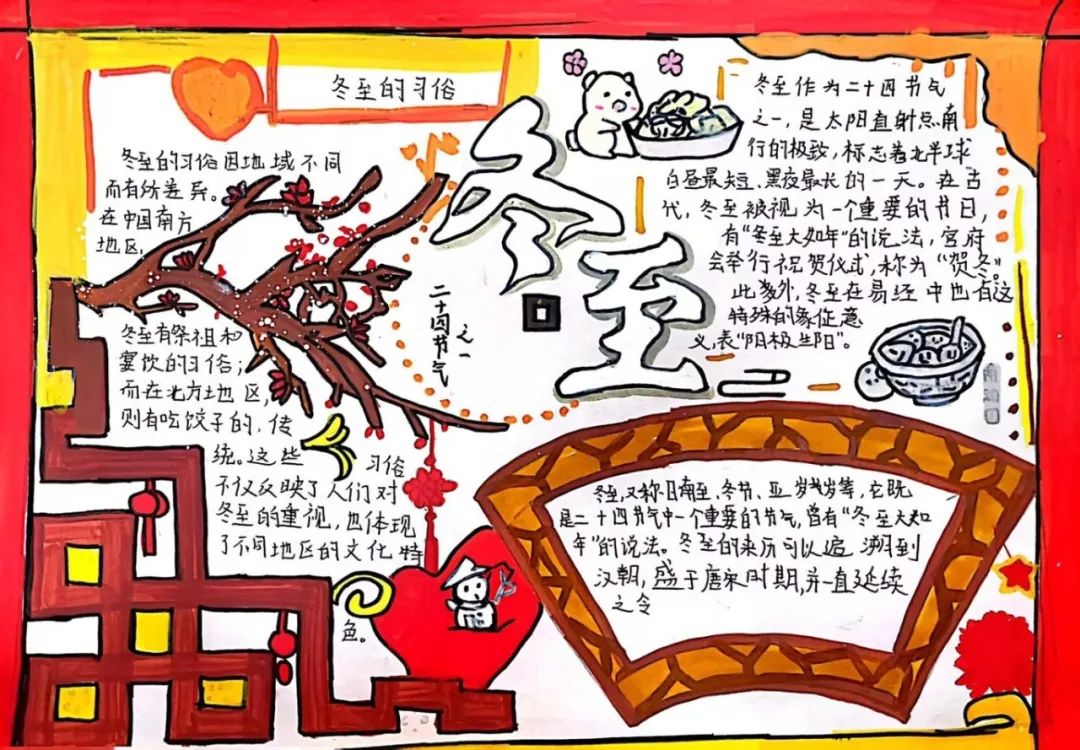 冬至的习俗
冬至的习俗因地域不同
而有所差异。
在中国南方
地区,
冬至有祭祖和
宴饮的习俗;
而在北方地区,
则有吃饺子的,传
统。这些 习俗
不仅反映了人们对
冬至的重视,也体现
了不同地区的文化特
色。
冬至
二十四节气
之一
冬至作为二十四节气
之一,是太阳直射点南
行的极致,标志着北半球
白昼最短、黑夜最长的一天。在古
代,冬至被视为一个重要的节日,
有“冬至大如年”的说法,宫府
会举行祝贺仪式,称为“贺冬”。
此外,冬至在易经中也有这
特殊的象征意
义,表“阳极生阳”。
冬至,又称日南至、冬节、亚岁等,它既
是二十四节气中一个重要的节气,曾有“冬至大如
年”的说法。冬至的来历可以追溯到
汉朝,盛于唐宋时期,并一直延续
之今